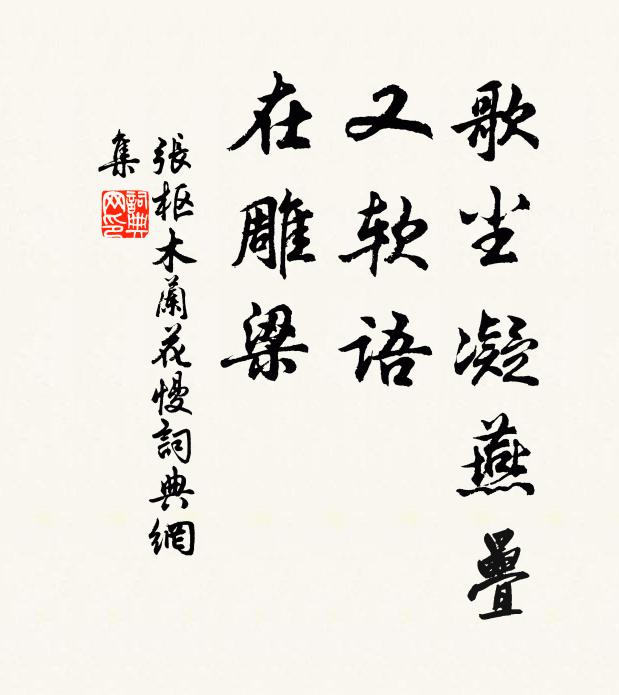 歌尘凝燕疊
又软语
在雕梁
張枢木蘭花慢詞典網
集
詞典
网印